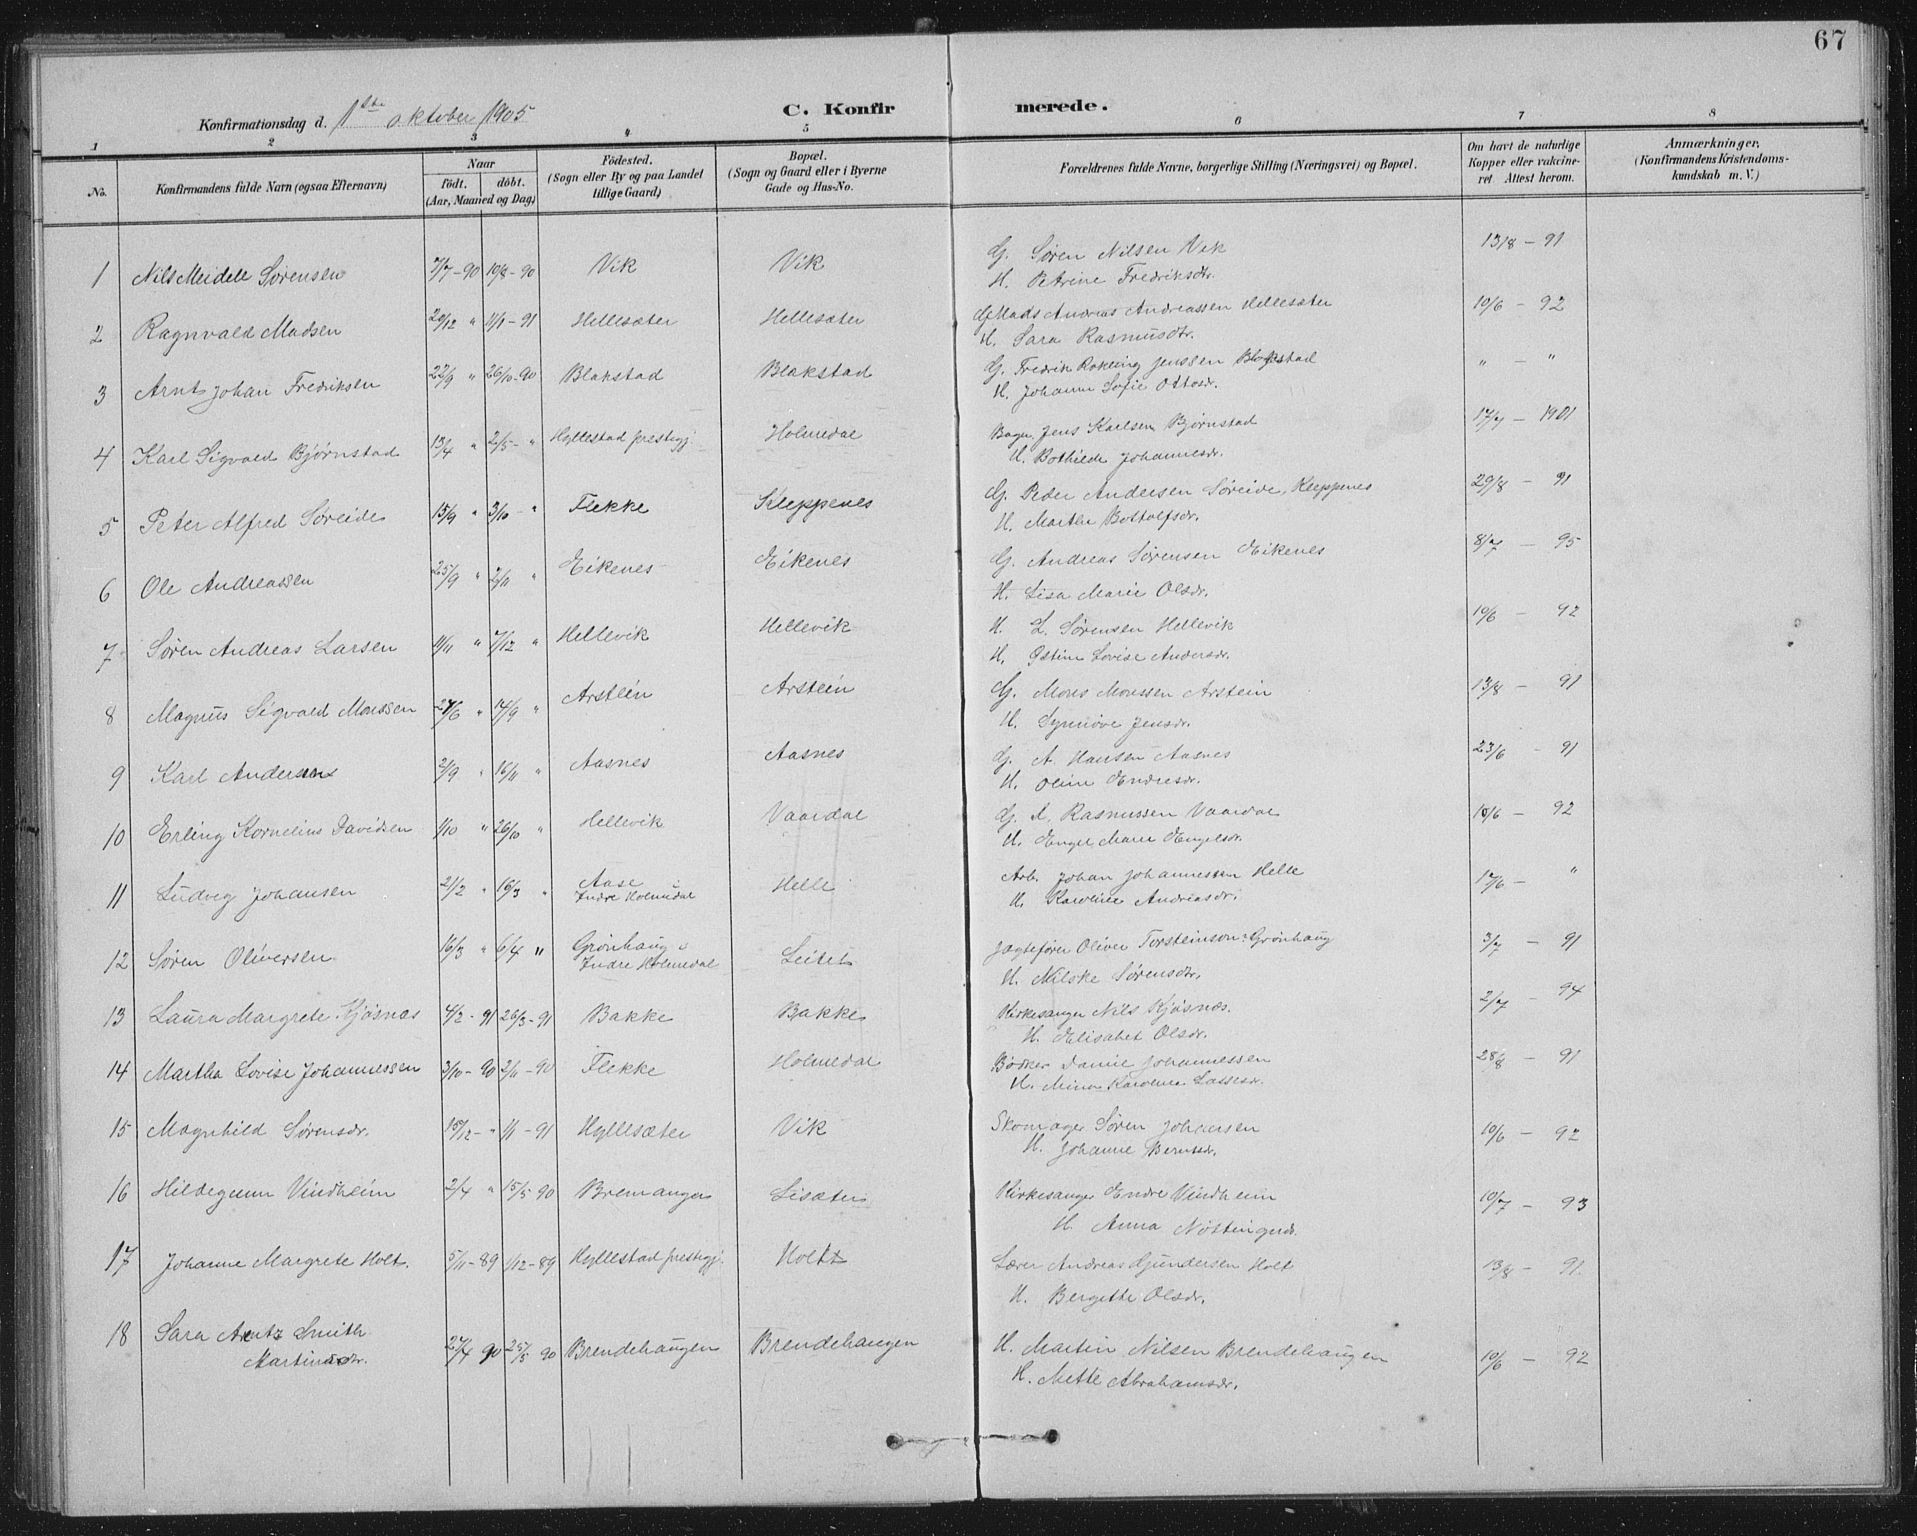 67
Konfirmationsdag d. 1ste oktober 1905 C. Konfirmerede.
1 2 3 4 5 6 7 8
No. Konfirmandens fulde Navn (ogsaa Efternavn) Naar födt. döbt. (Aar, Maaned og Dag) Födested. (Sogn eller By og paa Landet tillige Gaard) Bopæl. (Sogn og Gaard eller i Byerne Gade og Hus-No. Forældrenes fulde Navne, borgerlige Stilling (Næringsvei) og Bopæl. Om havt de naturlige Kopper eller vakcineret. Attest herom. Anmærkninger. (Konfirmandens Kristendomskundskab m. V.)
1 Nils Meidell Sørensen 7/7-90 10/8-90 Vik Vik G. Søren Nilsen Vik 13/8 - 91
H. Petrine Fredriksdr.
2 Ragnvald Madsen 20/12 " 11/1-91 Hellesæter Hellesæter G Mads Andreas Andreassen Hellesæter 10/6 - 92
H. Sara Rasmusdr.
3 Arnt Johan Fredriksen 22/9 " 26/10-90 Blakstad Blakstad G. Fredrik Jenssen Blakstad " - "
H. Johanne Sofie Ottosdr.
4 Karl Sigvald Bjørnstad 13/4 " 2/5- " Hyllestad prestegj. Holmedal Bager Jens Karlsen Bjørnstad 17/7 - 1901
H. Bothilde Johannesdr.
5 Peter Alfred Søreide 15/9 " 3/10- " Flekke Kleppenes G. Peder Andersen Søreide, Kleppenes 29/8 - 91
H. Marthe Bottolfsdr.
6 Ole Andreassen 25/9 " 2/11 " Eikenes Eikenes G. Andreas Sørensen Eikenes 8/7 - 95
H. Lisa Marie Olsdr.
7 Søren Andreas Larsen 11/11 " 7/12 " Hellevik Hellevik H. L. Sørensen Hellevik 10/6 - 92
H. Lovise Andersdr.
8 Magnus Sigvald Monssen 27/6 " 14/9 " Arstein Arstein G. Mons Monssen Arstein 13/8 - 91
H. Synnøve Jensdr.
9 Karl Andersen 2/9 " 16/11 " Aasnes Aasnes G. A. Hansen Aasnes 23/6 - 91
H. Oline Endresdr.
10 Erling Kornelius Davidsen 1/10 " 26/10 " Hellevik Vaardal G. Rasmussen Vaardal 10/6 - 92
H. Engel Marie Engelsdr.
11 Ludvig Johansen 21/2 " 16/3 " Aase Indre Holmedal Helle Arb. Johan Johannessen Helle 17/6 - "
H. Karoline Andreasdr.
12 Søren Oliversen 16/3 " 6/4 " Grønhaug i Indre Holmedal Leitet Jagtefører Oliver Torsteinson Grønhaug 3/7 - 91
H. Nilske Sørensdr.
13 Laura Margrete Kjøsnæs 4/2-91 26/3-91 Bakke Bakke Kirkesanger Nils Kjøsnæs. 2/7 - 94
H. Elisabet Olsdr.
14 Martha Lovise Johannessen 3/10-90 2/11-90 Flekke Holmedal Bødker Johannessen 28/8 - 91
H. Mina Karoline Lassesdr.
15 Magnhild Sørensdr. 15/12- " 1/1-91 Hyllesæter Vik Skomager Søren Johansen 10/6 - 92
H. Johanne Berntsdr.
16 Hildegunn Vindheim 2/4 " 15/5 90 Bremanger Lisæter Kirkesanger Endre Vindheim 10/7 - 93
H. Anna
17 Johanne Margrete Holt. 5/11-89 1/12-89 Hyllestad prestegj. Holt Lærer Andreas Gundersen Holt 13/8 - 91.
H. Bergette Olsdr.
18 Sara Arentz Smith 27/4 90 25/5 90 Brendehaugen Brendehaugen H. Martin Nilsen Brendehaugen 10/6 - 92
Martinusdr. H. Mette Abrahamsdr.